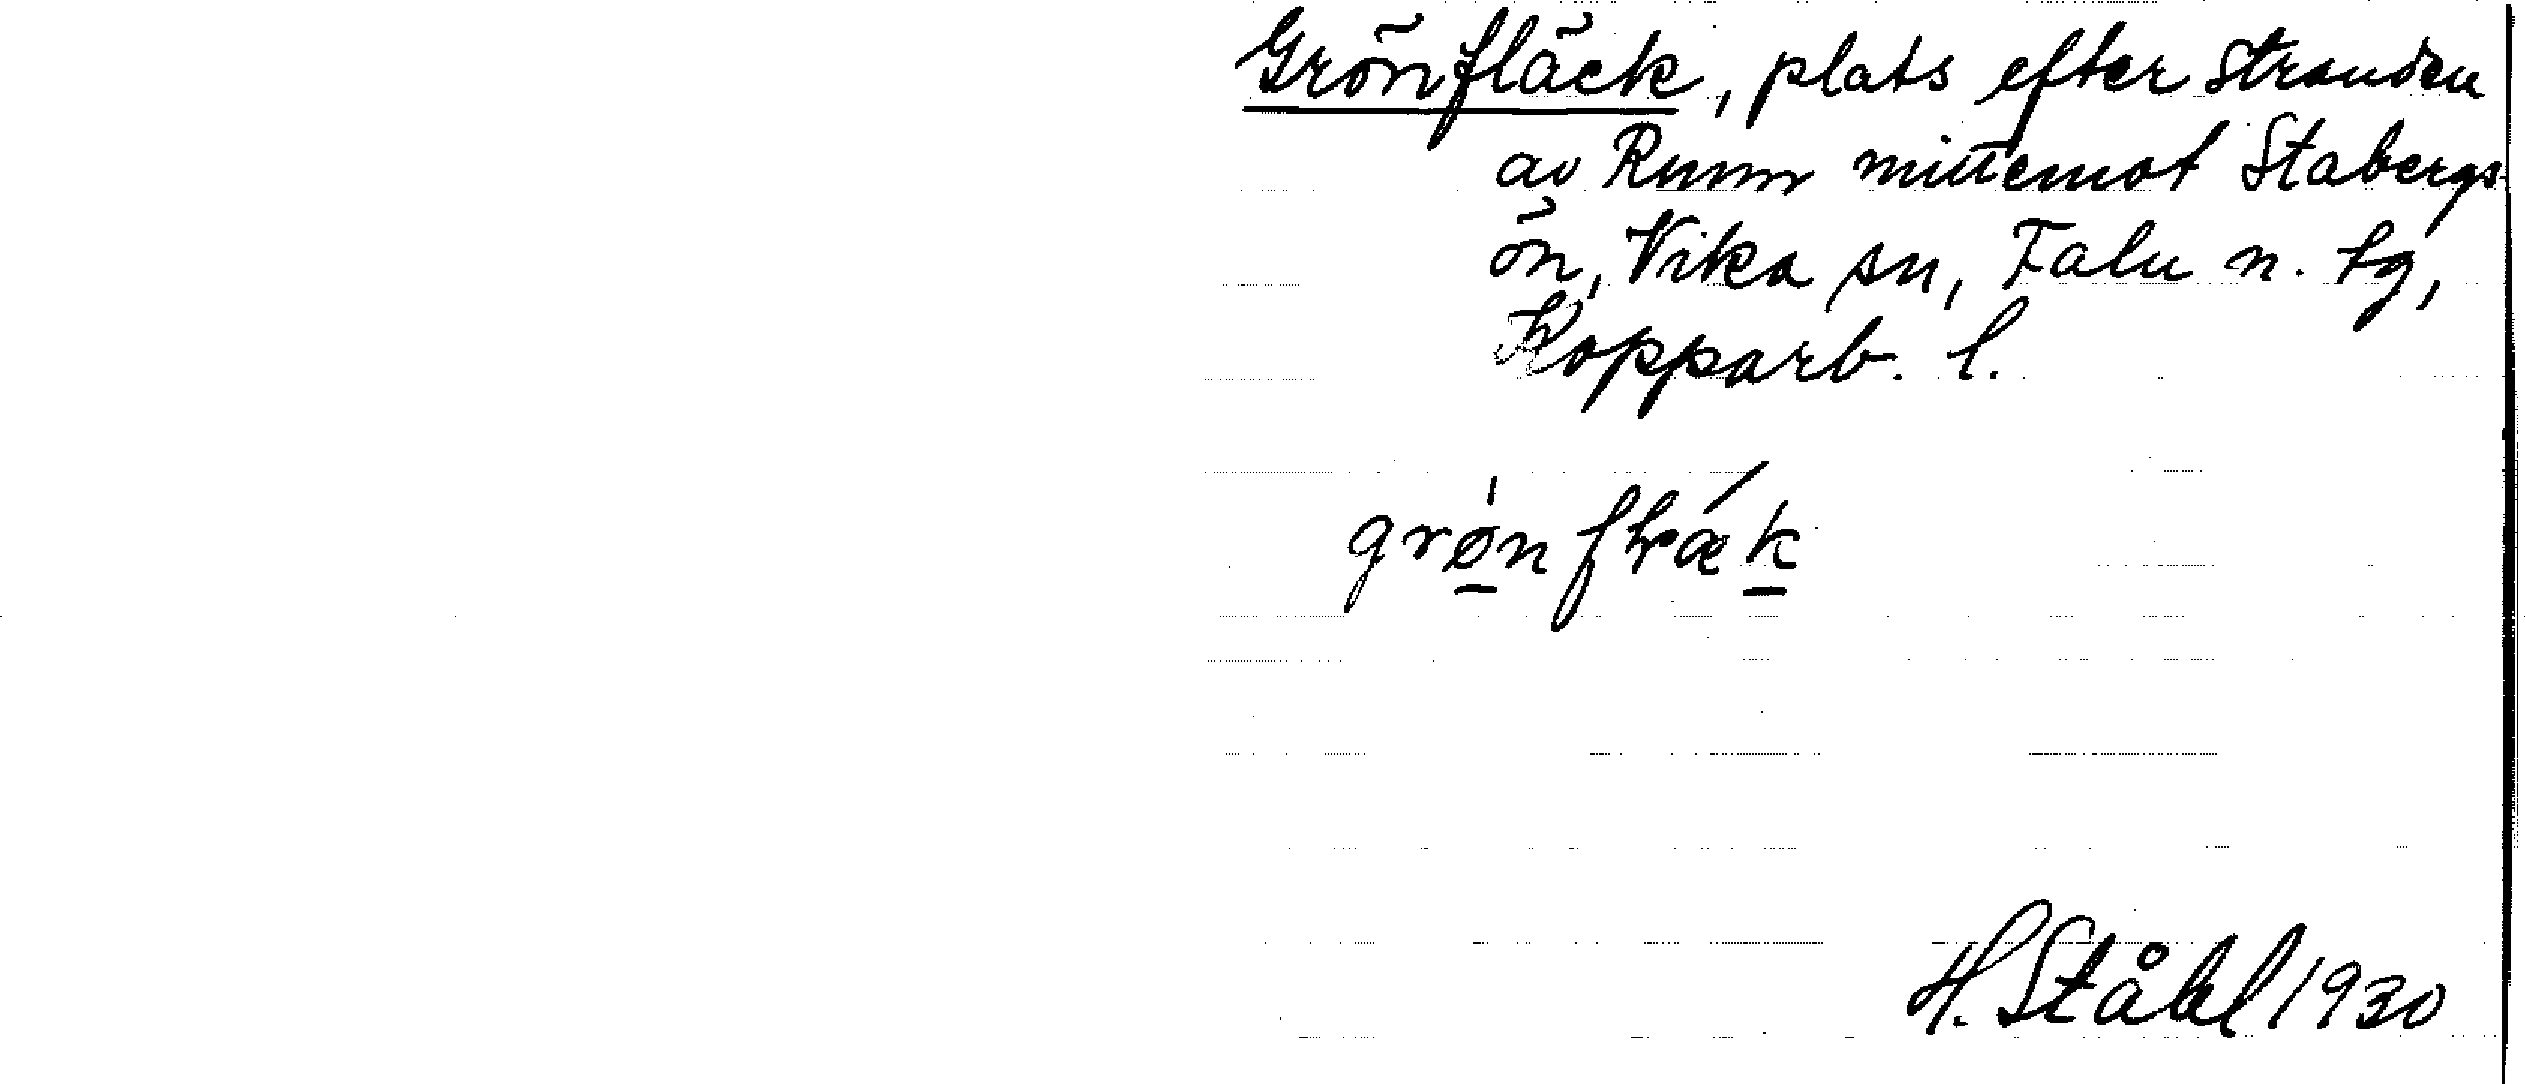 Grönfläck, plats efter stranden
av Runn mittemot Stabergs-
ön, Vika sn, Falu n. tg,
Kopparb. l.
grǿ̲nflǽk̲
H. Ståhl 1930